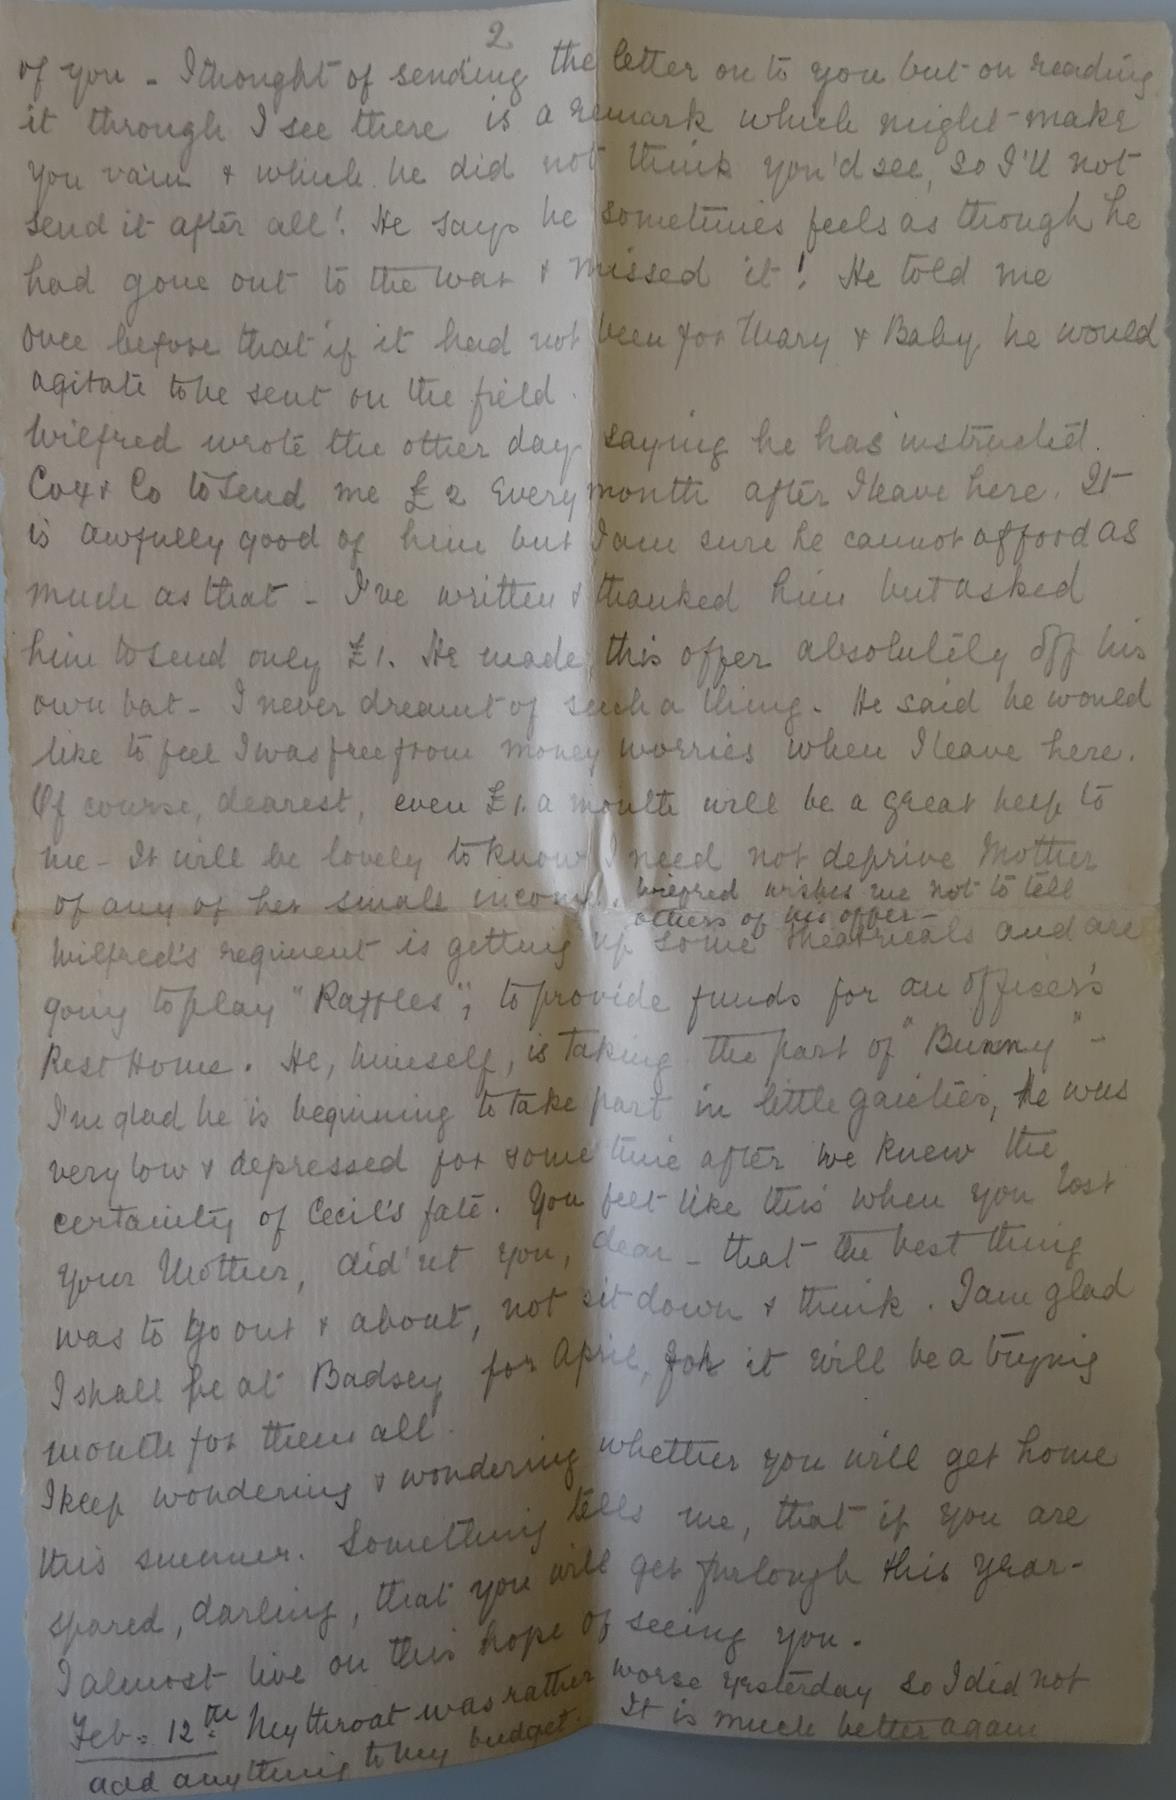 2
of you - I thought of sending the letter on to you but on reading
it through I see there is a remark which might make
you vain & which he did not think you'd see, so I'll not
send it after all! He says he sometimes feels as though he
had gone out to the war & missed it! He told me
once before that if it had not been for Mary & Baby he would
agitate to be sent on the field.
Wilfred wrote the other day saying he has instructed
Cox & Co to send me £2 every month after I leave here. It
is awfully good of him but I am sure he cannot afford as
much as that - I've written & thanked him but asked
him to send only £1. He made this offer absolutely off his
own bat - I never dreamt of such a thing. He said he would
like to feel I was free from money worries when I leave here.
Of course, dearest, even £1. a month will be a great help to
me - It will be lovely to know I need not deprive Mother
of any of her small income. Wilfred wishes me not to tell
others of his offer -
Wilfred's regiment is getting up some theatricals and are
going to play "Raffles", to provide funds for an officer's
Rest Home. He, himself, is taking the part of "Bunny" -
I'm glad he is beginning to take part in little gaieties, He was
very low & depressed for some time after we knew the
certainty of Cecil's fate. You felt like this when you lost
your Mother, did'nt you, dear - that the best thing
was to go out & about, not sit down & think. I am glad
I shall be at Badsey for April, for it will be a trying
month for them all.
I keep wondering & wondering whether you will get home
this summer. Something tells me, that if you are
spared, darling, that you will get furlough this year -
I almost live on this hope of seeing you.
Feb = 12th My throat was rather worse yesterday so I did not
add anything to my budget. It is much better again